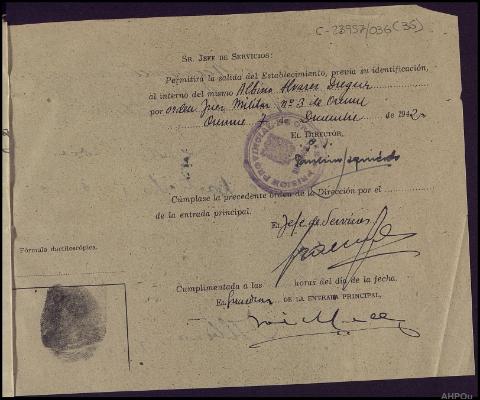 C-23957/036 (35)
SR. JEFE DE SERVICIOS:
Permitirá la salida del Establecimiento, previa su identificación,
al interno del mismo Albino Alvarez
por orden Juez Militar nº 3 de Orense
Orense 7 Diciembre de 1942
EL DIRECTOR,
PRISION PROVINCIAL DE
Cúmplase la precedente orden de la Dirección por el
de la entrada principal.
El Jefe de Servicios
Fórmula dactiloscópica.
Cumplimentada a las horas del día de la fecha.
El DE LA ENTRADA PRINCIPAL,
AHPOu